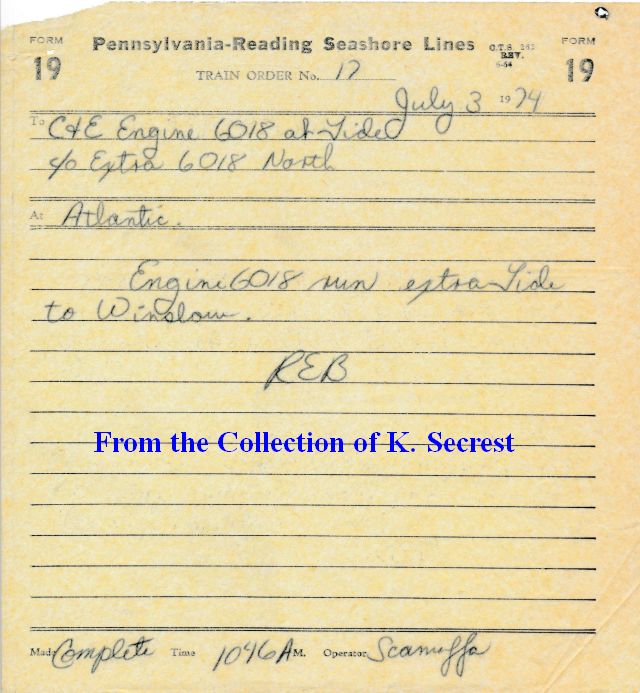 FORM 19 Pennsylvania-Reading Seashore Lines O.T.S. 262 REV. 6-54 FORM 19
TRAIN ORDER No. 17
July 3 1974
To C+E Engine 6018 at Tide
c/o Extra 6018 North
At Atlantic.
Engine 6018 run extra Tide
to Winslow.
REB
From the Collection of K. Secrest
Made Complete Time 1046 A M. Operator